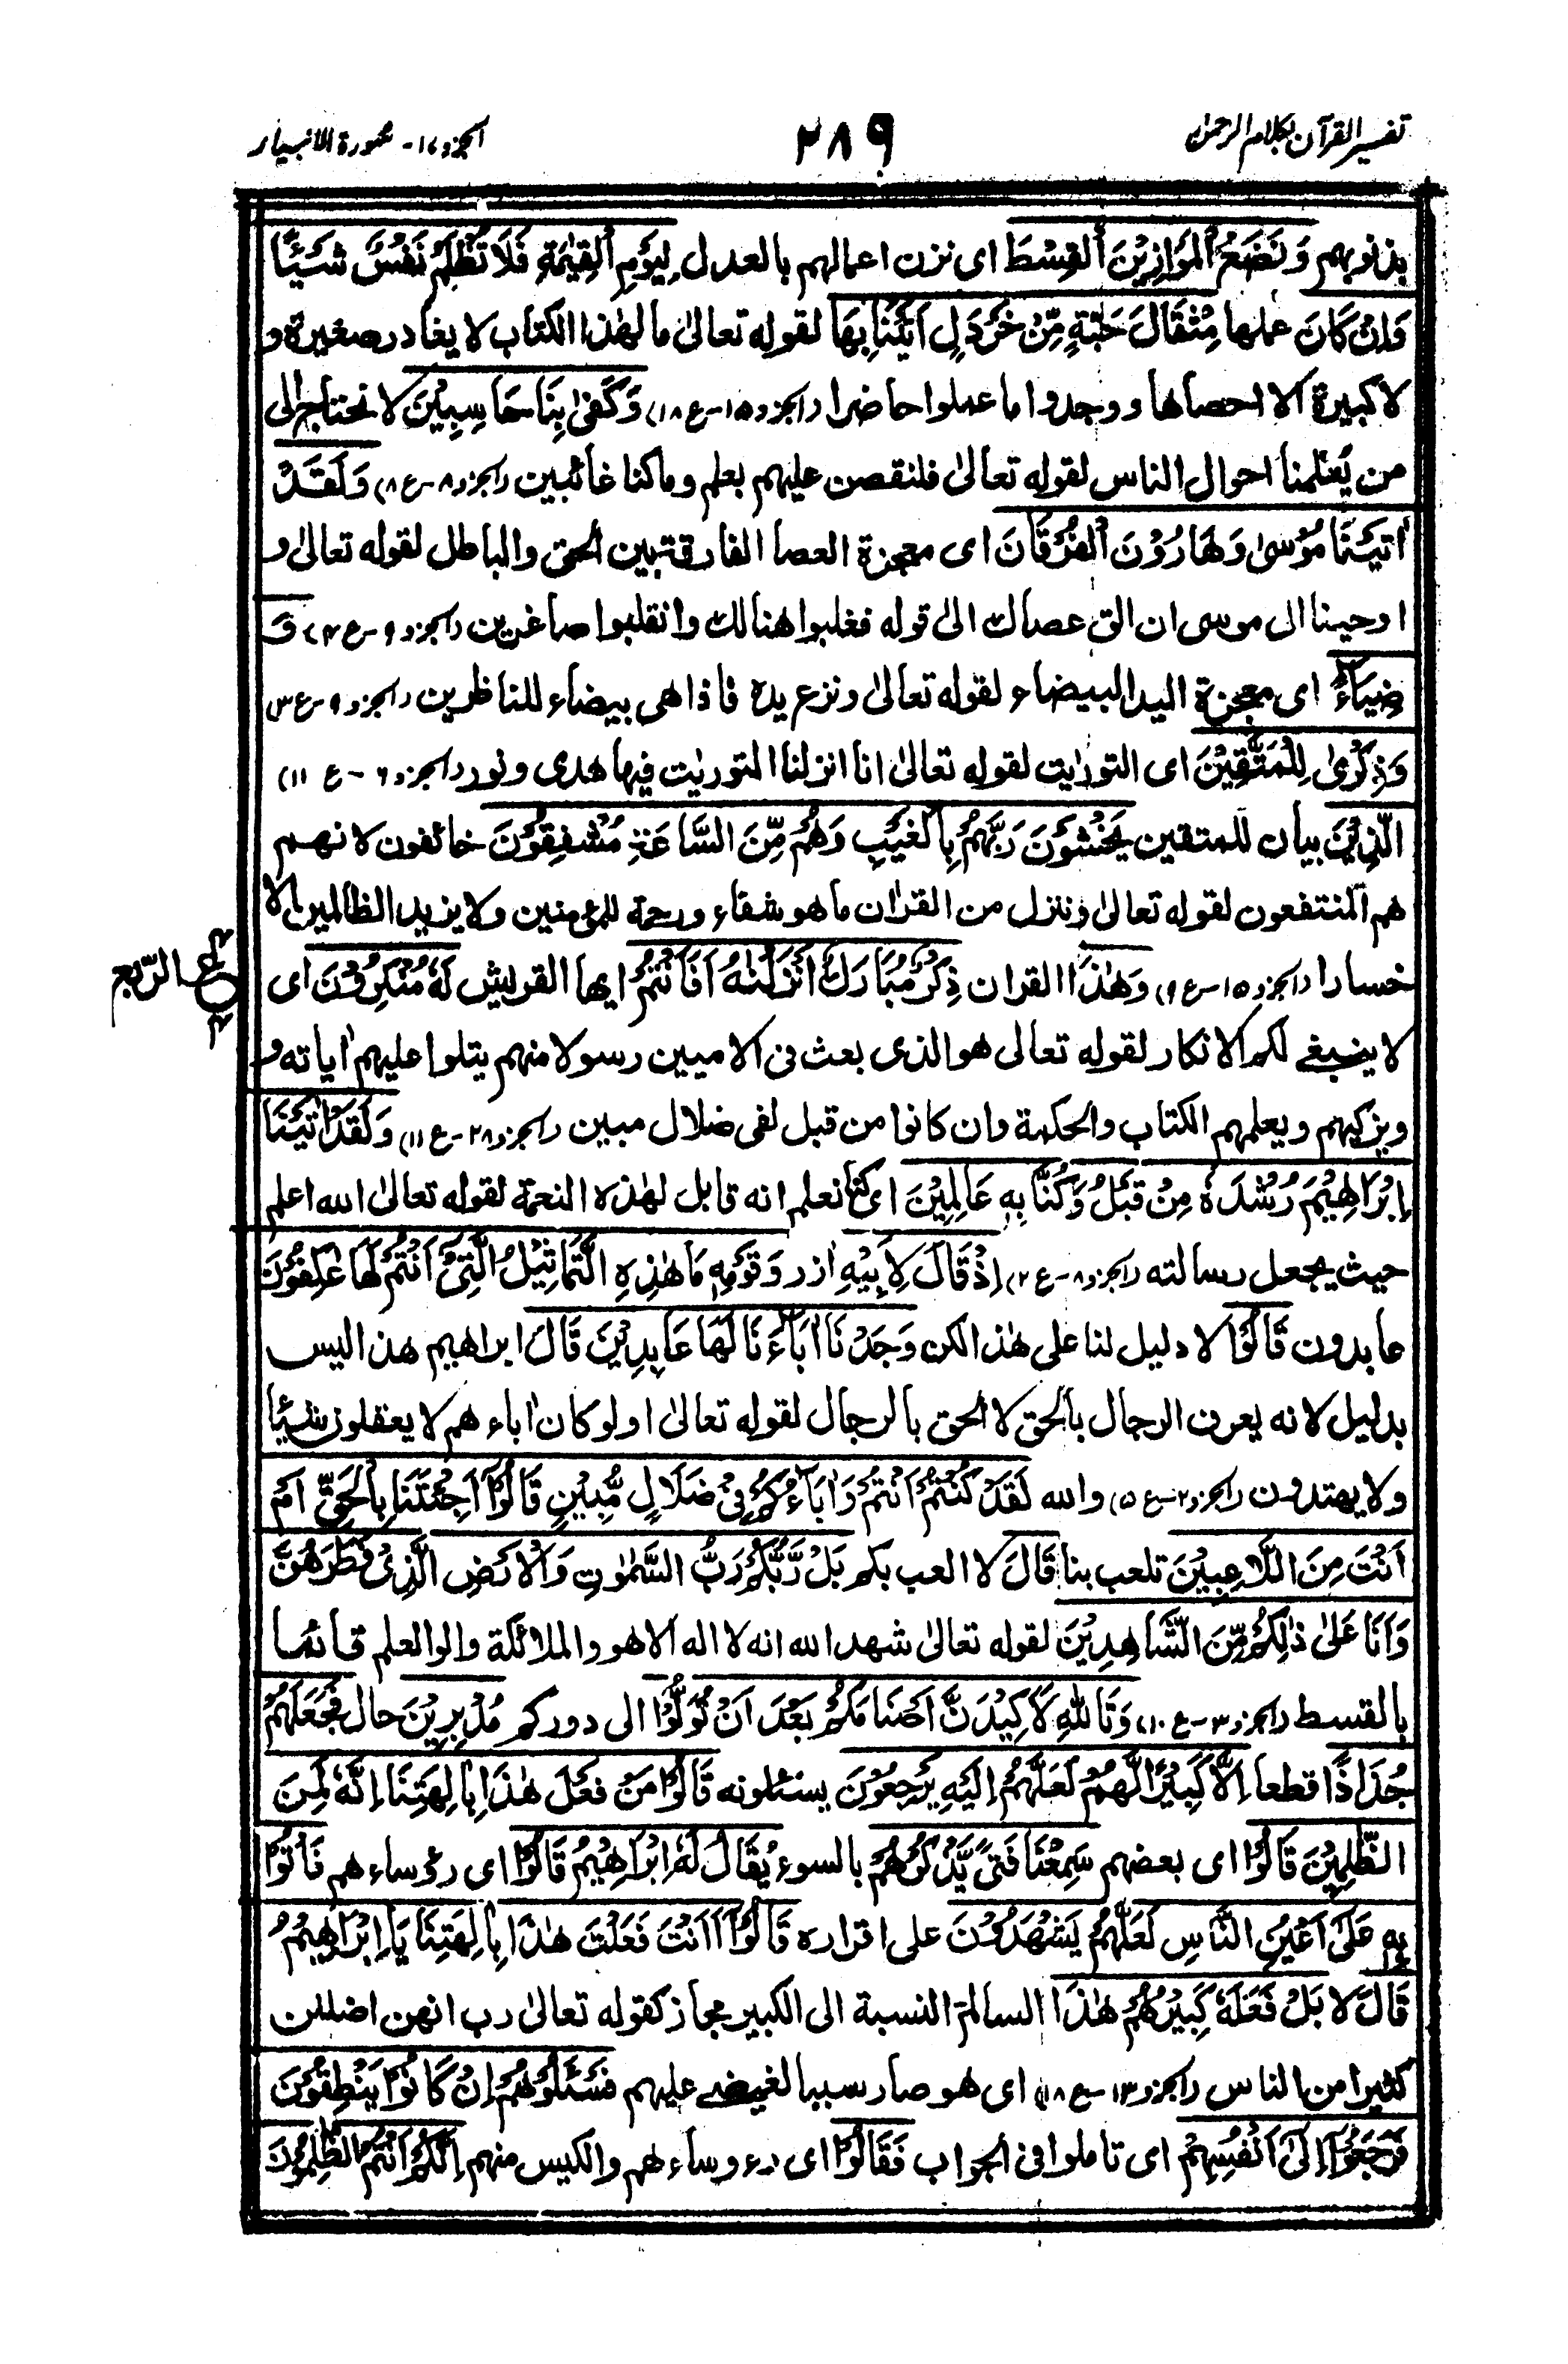 تفسير القرآن بكلام الرحمٰن
٢٨٩
الجزو ١٧ - سورة الانبياء
بذنوبهم وَنَضَعُ الْمَوَازِيْنَ الْقِسْطَ اى نزن اعمالهم بالعدل لِيَوْمِ الْقِيٰمَةِ فَلَا تُظْلَمُ نَفْسٌ شَيْئًا
وَاِنْ كَانَ عملها مِثْقَالَ حَبَّةٍ مِّنْ خَرْدَلٍ اَتَيْنَا بِهَا لقوله تعالىٰ ما لهٰذا الكتاب لا يغادر صغيرة و
لا كبيرة الا احصاها ووجدوا ما عملوا حاضرا (الجزو ١٥-ع ١٨) وَكَفٰى بِنَا حَاسِبِيْنَ لا نحتاج الى
من يُعَلِّمنا احوال الناس لقوله تعالىٰ فلنقصن عليهم بعلم وما كنا غائبين (الجزو ٨-ع ٨) وَلَقَدْ
اٰتَيْنَا مُوْسٰى وَهَارُوْنَ الْفُرْقَانَ اى معجزة العصا الفارقة بين الحق والباطل لقوله تعالىٰ و
اوحينا الى موسى ان الق عصاك الىٰ قوله فغلبوا هنالك وانقلبوا صاغرين (الجزو ٩-ع ٤) وَ
ضِيَآءً اى معجزة اليد البيضاء لقوله تعالىٰ ونزع يده فاذا هى بيضاء للناظرين (الجزو ٩-ع ٣)
وَذِكْرٰى لِلْمُتَّقِيْنَ اى التورٰيت لقوله تعالىٰ انا انزلنا التوريٰت فيها هدى ونور (الجزو ٦ - ع ١١)
الَّذِيْنَ بيان للمتقين يَخْشَوْنَ رَبَّهُمْ بِالْغَيْبِ وَهُمْ مِّنَ السَّاعَةِ مُشْفِقُوْنَ خائفون لانهم
هم المنتفعون لقوله تعالىٰ وننزل من القرٰان ما هو شفاء ورحمة للمؤمنين ولا يزيد الظالمين الا
خسارا (الجزو ١٥-ع ٩) وَهٰذَا القران ذِكْرٌ مُّبَارَكٌ اَنْزَلْنٰهُ اَفَاَنْتُمْ ايها القريش لَهٗ مُنْكِرُوْنَ اى
ع الرّبع
٤
لا ينبغى لكم الانكار لقوله تعالى هو الذى بعث فى الاميين رسولا منهم يتلوا عليهم اٰياته و
ويزكيهم ويعلمهم الكتاب والحكمة وان كانوا من قبل لفى ضلال مبين (الجزو ٢٨-ع ١١) وَلَقَدْ اٰتَيْنَا
اِبْرَاهِيْمَ رُشْدَهٗ مِنْ قَبْلُ وَكُنَّا بِهٖ عَالِمِيْنَ اى كنا نعلم انه قابل لهٰذه النعمة لقوله تعالىٰ الله اعلم
حيث يجعل رسالته (الجزو ٨-ع ٢) اِذْ قَالَ لِاَبِيْهِ اٰزر وَقَوْمِهٖ مَا هٰذِهِ التَّمَاثِيْلُ الَّتِىْٓ اَنْتُمْ لَهَا عٰكِفُوْنَ
عابدون قَالُوْا لا دليل لنا على هٰذا لكن وَجَدْنَآ اٰبَآءَنَا لَهَا عَابِدِيْنَ قَالَ ابراهيم هذا ليس
بدليل لانه يعرف الرجال بالحق لا الحق بالرجال لقوله تعالىٰ اولو كان اٰباءهم لا يعقلون شيئا
ولا يهتدون (الجزو ٢-ع ٥) والله لَقَدْ كُنْتُمْ اَنْتُمْ وَاٰبَآؤُكُمْ فِىْ ضَلَالٍ مُّبِيْنٍ قَالُوْٓا اَجِئْتَنَا بِالْحَقِّ اَمْ
اَنْتَ مِنَ اللَّاعِبِيْنَ تلعب بنا قَالَ لا العب بكم بَلْ رَّبُّكُمْ رَبُّ السَّمٰوٰتِ وَالْاَرْضِ الَّذِىْ فَطَرَهُنَّ
وَاَنَا عَلٰى ذٰلِكُمْ مِّنَ الشَّاهِدِيْنَ لقوله تعالىٰ شهد الله انه لا اله الا هو والملائكة والوا العلم قائما
بالقسط (الجزو ٣-ع ١٠) وَتَاللّٰهِ لَاَكِيْدَنَّ اَصْنَامَكُمْ بَعْدَ اَنْ تُوَلُّوْا الى دوركم مُدْبِرِيْنَ حال فَجَعَلَهُمْ
جُذَاذًا قطعا اِلَّا كَبِيْرًا لَّهُمْ لَعَلَّهُمْ اِلَيْهِ يَرْجِعُوْنَ يسئلونه قَالُوْا مَنْ فَعَلَ هٰذَا بِاٰلِهَتِنَا اِنَّهٗ لَمِنَ
الظّٰلِمِيْنَ قَالُوْا اى بعضهم سَمِعْنَا فَتًى يَّذْكُرُهُمْ بالسوء يُقَالُ لَهٗ اِبْرَاهِيْمُ قَالُوْا اى رؤساءهم فَاْتُوْا
بِهٖ عَلٰٓى اَعْيُنِ النَّاسِ لَعَلَّهُمْ يَشْهَدُوْنَ على اقراره قَالُوْٓا ءَاَنْتَ فَعَلْتَ هٰذَا بِاٰلِهَتِنَا يَآ اِبْرَاهِيْمُ
قَالَ لا بَلْ فَعَلَهٗ كَبِيْرُهُمْ هٰذَا السالم النسبة الى الكبير مجاز كقوله تعالىٰ رب انهن اضللن
كثيرا من الناس (الجزو ١٣-ع ١٨) اى هو صار سببا لغيضى عليهم فَسْئَلُوْهُمْ اِنْ كَانُوْا يَنْطِقُوْنَ
فَرَجَعُوْٓا اِلٰٓى اَنْفُسِهِمْ اى تاملوا فى الجواب فَقَالُوْٓا اى رءوساءهم والكيس منهم اِنَّكُمْ اَنْتُمُ الظّٰلِمُوْنَ